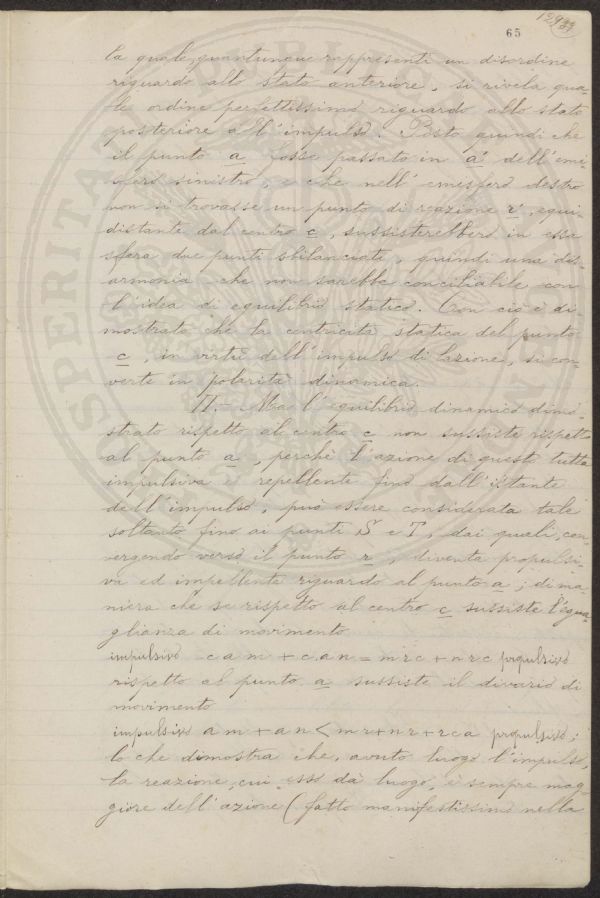 65
129
la quale, quantunque rappresenti un disordine
riguardo allo stato anteriore, si rivela qua-
le ordine perfettissimo riguardo allo stato
posteriore all'impulso. Posto quindi che
il punto a fosse passato in a' dell'emi-
sfero sinistro, e che nell'emesfero destro
non si trovasse un punto di reazione r', equi-
distante dal centro c, sussisterebbero in essa
sfera due punti sbilanciati, quindi una dis-
armonia che non sarebbe conciliabile con
l'idea di equilibrio statico. Con ciò è di-
mostrato che la centricità statica del punto
c, in virtù dell'impulso di lazione, si con-
verte in polarità dinamica.
II.- Ma l'equilibrio dinamico dimo-
strato rispetto al centro c non sussiste rispetto
al punto a, perchè l'azione di questo tutta
impulsiva e repellente fino dall'istante
dell'impulso, può essere considerata tale
soltanto fino ai punti S e T, dai quali, con-
vergendo verso il punto r, diventa propulsi-
va ed impellente riguardo al punto a; di ma-
niera che se rispetto al centro c sussiste l'egua-
glianza di movimento
impulsivo c a m + c a n = m r c + n r c propulsivo
rispetto al punto a sussiste il divario di
movimento
impulsivo a m + a n < m r + n r + r c a propulsivo;
lo che dimostra che, avuto luogo l'impulso,
la reazione, cui esso dà luogo, è sempre mag-
giore dell'azione (fatto manifestissimo nella